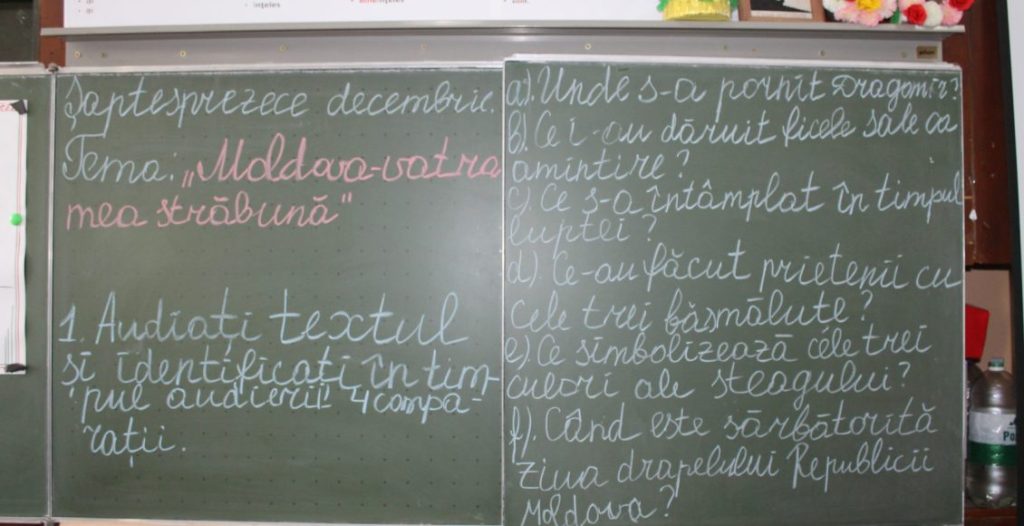 Șaptesprezece decembrie.
Tema: „Moldova-vatra
mea străbună"
1. Audiați textul
și identificați în tim-
pul audierii 4 compa-
rații.
a). Unde s-a pornit Dragomir?
b). Ce i-au dăruit fiicele sale ca
amintire?
c). Ce s-a întâmplat în timpul
luptei?
d). Ce-au făcut prietenii cu
cele trei băsmăluțe?
e). Ce simbolizează cele trei
culori ale steagului?
f). Când este sărbătorită
ziua drapelului Republicii
Moldova?